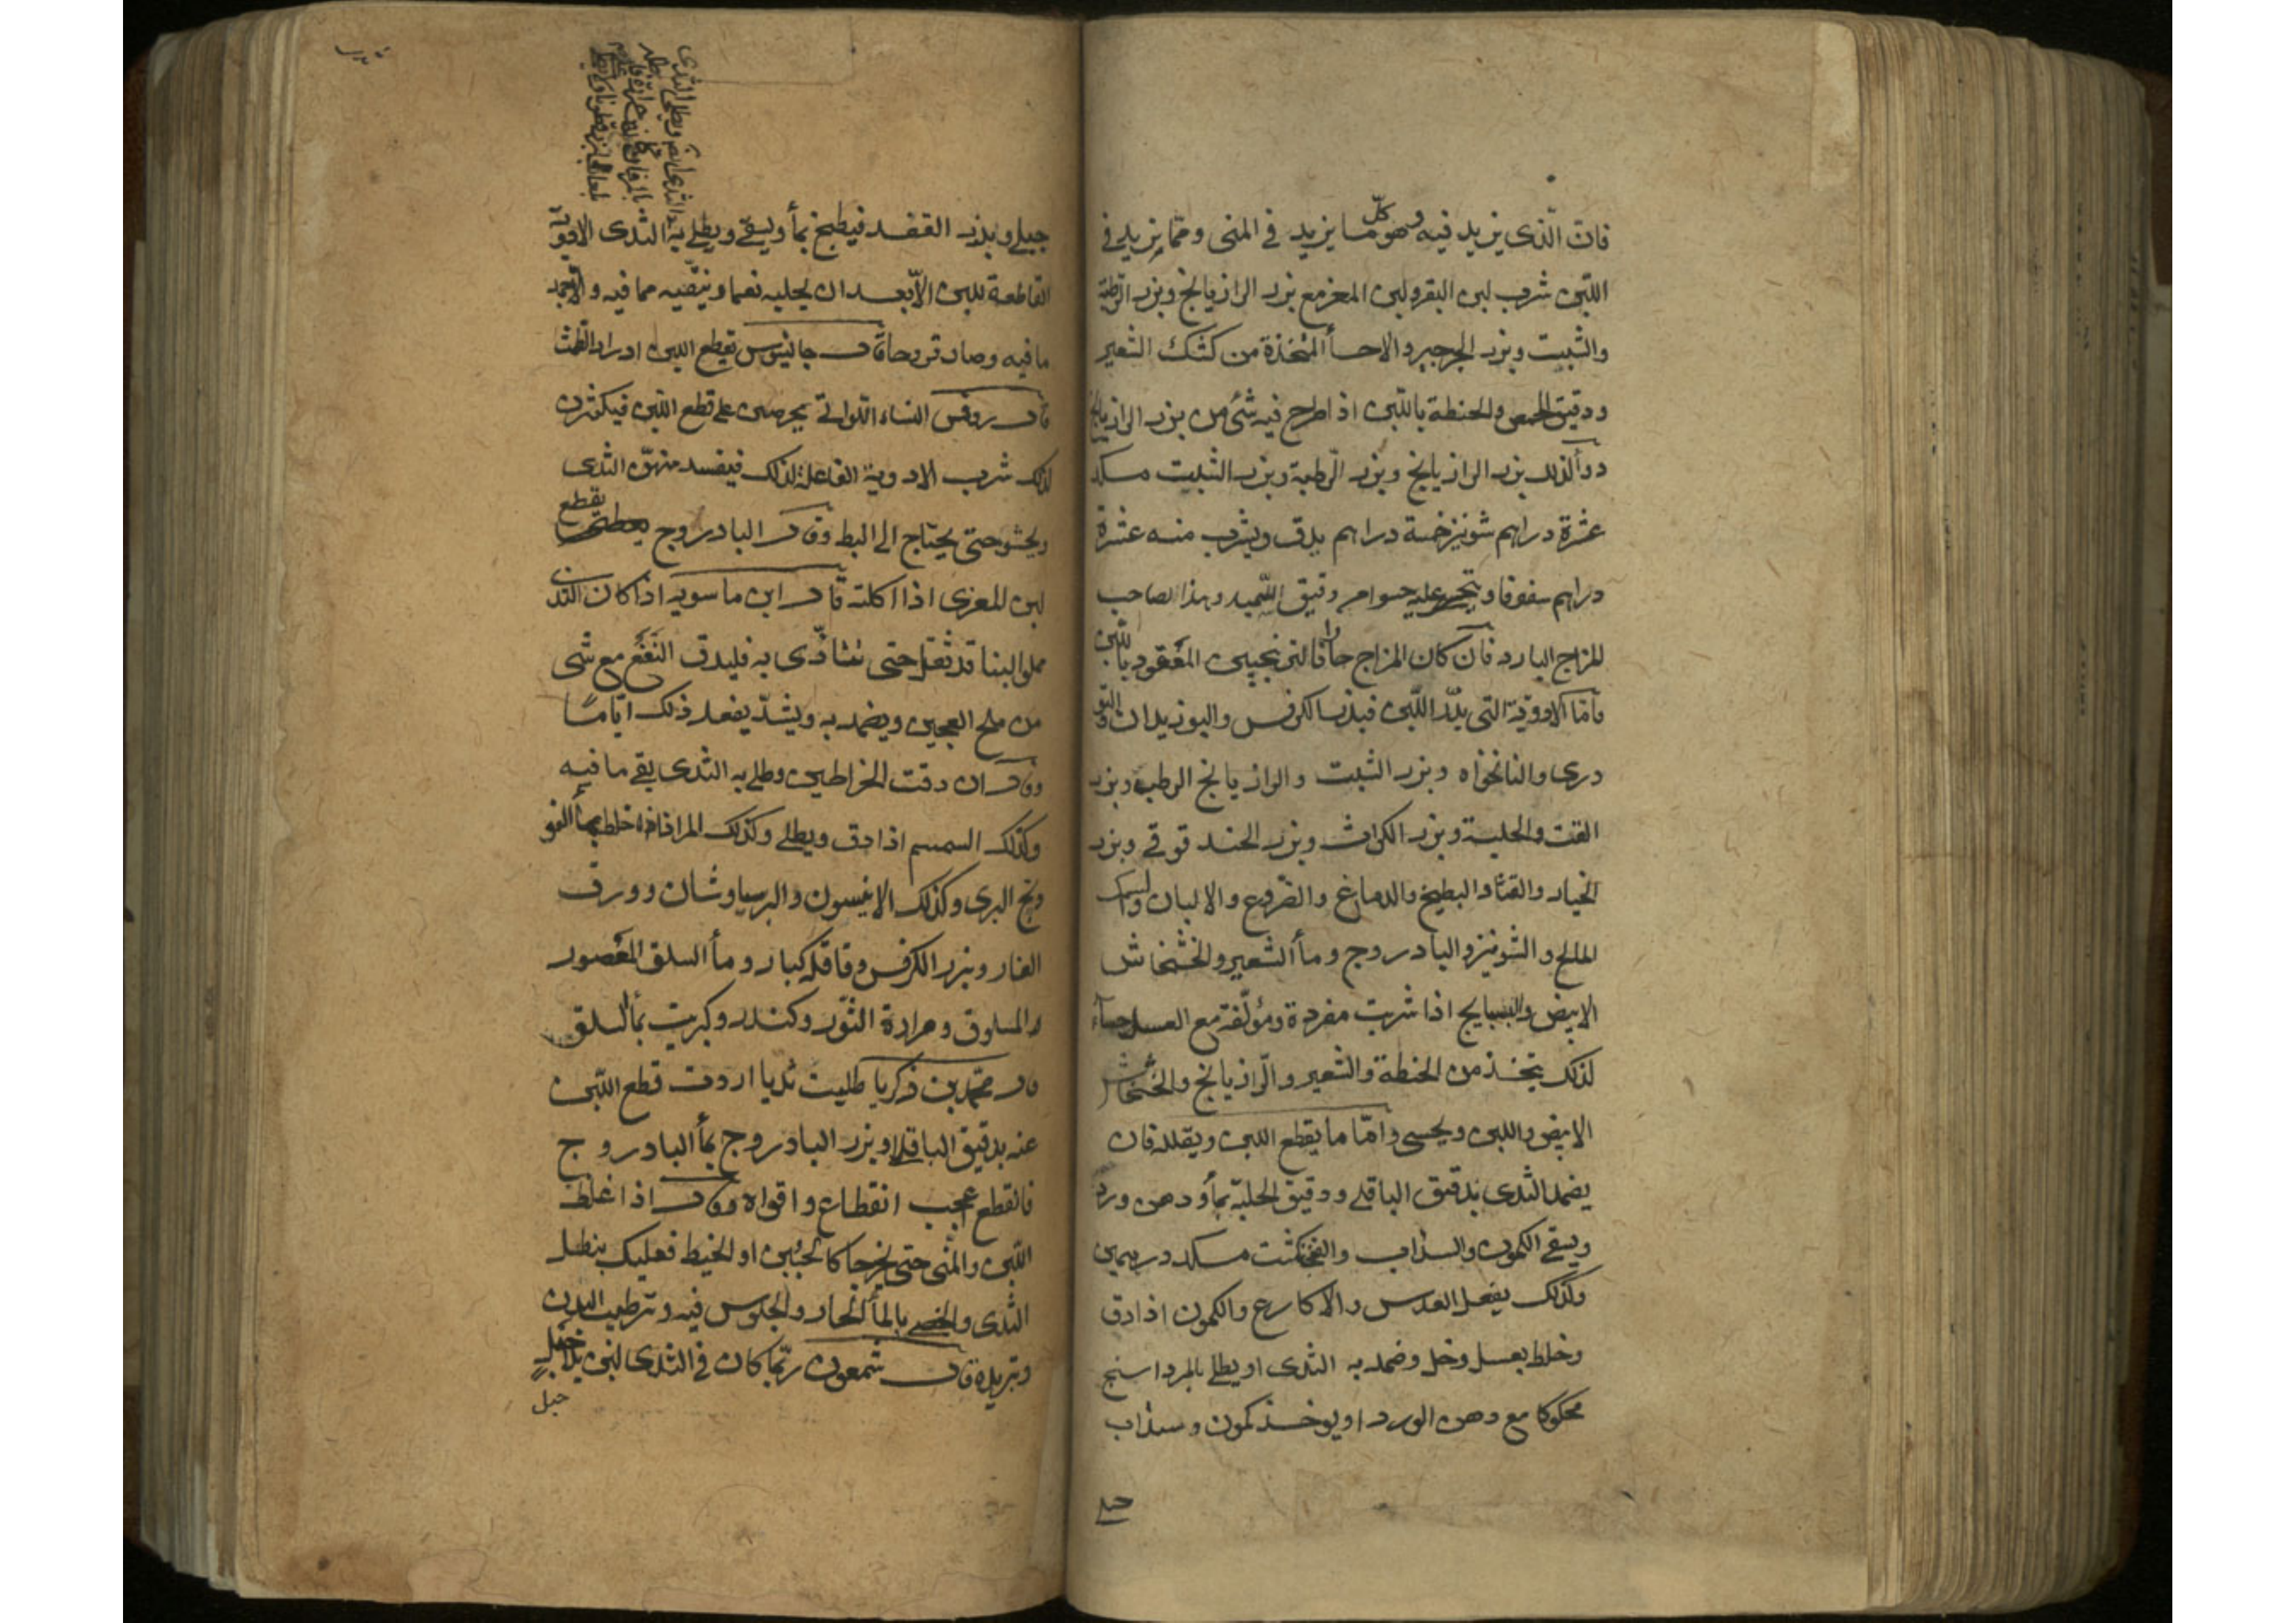 فان الذى يزيد فيه وهو كل ما يزيد فى المنى ومما يزيد فى
اللبن شرب لبن البقر ولبن المعز مع بزر الرازيانج وبزر الرطبة
والشبت وبزر الجرجير والاحسأ المتخذة من كشك الشعير
ودقيق الحمص والحنطة باللبن اذا طرح فيه شئ من بزر الرازيانج
دوأ لذلك بزر الرازيانج وبزر الرطبة وبزر الشبت مسكد
عشرة دراهم شونيز خمسة دراهم يدق ويشرب منه عشرة
دراهم سفوفا ويتجرع عليه حسوا من دقيق السميد وهذا لصاحب
المزاج البارد فان كان المزاج حارا فالترنجبين المعقود باللبن
فاما الادوية التى يدر اللبن فبذر الكرفس والبوزيدان والتو
درى والنانخواه وبزر الشبت والرازيانج الرطب وبزر
القت والحلبة وبزر الكراث وبزر الحندقوقى وبزر
الخيار والقثاء والبطيخ والدماغ والضروع والالبان والسمك
المالح والشونيز والبادروج ومأ الشعير والخشخاش
الابيض والبسبايج اذا شربت مفردة ومؤلفة مع العسل حسأ
لذلك يتخذ من الحنطة والشعير والرازيانج والخشخاش
الابيض واللبن ويحسى واما ما يقطع اللبن ويقلله فان
يضمد الثدى بدقيق الباقلى ودقيق الحلبة بمأ ودهن ورد
ويسقى الكمون والسذاب والفنجنكشت مسكد درهمين
وكذلك يفعل العدس والاكارع والكمون اذا دق
وخلط بعسل وخل وضمد به الثدى او يطلى بالمرداسنج
محكوكا مع دهن الورد او يوخذ كمون وسذاب
جبلى
جبلى وبذر الفقد فيطبخ بمأ ويسقى ويطلى به الثدى الادوية
القاطعة للبن الا بعد ان يحلبه نعما وينقيه مما فيه والا جمد
ما فيه وصار قروحا قال جالينوس يقطع اللبن ادرار الطمث
قال روفس النساء اللواتى يحرصن على قطع اللبن فيكثرن
لذلك شرب الادوية الفاعلة لذلك فيفسد منهن الثدى
ويحشو حتى يحتاج الى البط وقال البادروج يقطع
لبن المعزى اذا اكلته قال ابن ماسويه اذا كان الثدى
مملوا لبنا قد ثقل حتى تتأذى به فليدق النعنع مع شى
من ملح العجين ويضمد به ويشد يفعل ذلك اياما
وقال ان دقت الخراطين وطلى به الثدى بقى ما فيه
وكذلك السمسم اذا دق ويطلى وكذلك المرافاذا خلط بمأ الفو
ونج البرى وكذلك الانيسون والبرسياوشان وورق
الغار وبزر الكرفس وقاقله كبار ومأ السلق المعصور
والمسلوق ومرارة الثور وكندر وكبريت بمأ السلق
قال محمد بن زكريا طليت ثديا اردت قطع اللبن
عنه بدقيق الباقلا وبزر البادروج بمأ البادروج
فانقطع عجب انقطاع واقواه وقال اذا غلظ
اللبن والمنى حتى يخرجا كالجبن او الخيط فعليك بنطل
الثدى والخصى بالمأ الحار والجلوس فيه وترطيب البدن
وتبريده قال شمعون ربما كان فى الثدى لبن بلا حبل
حبل